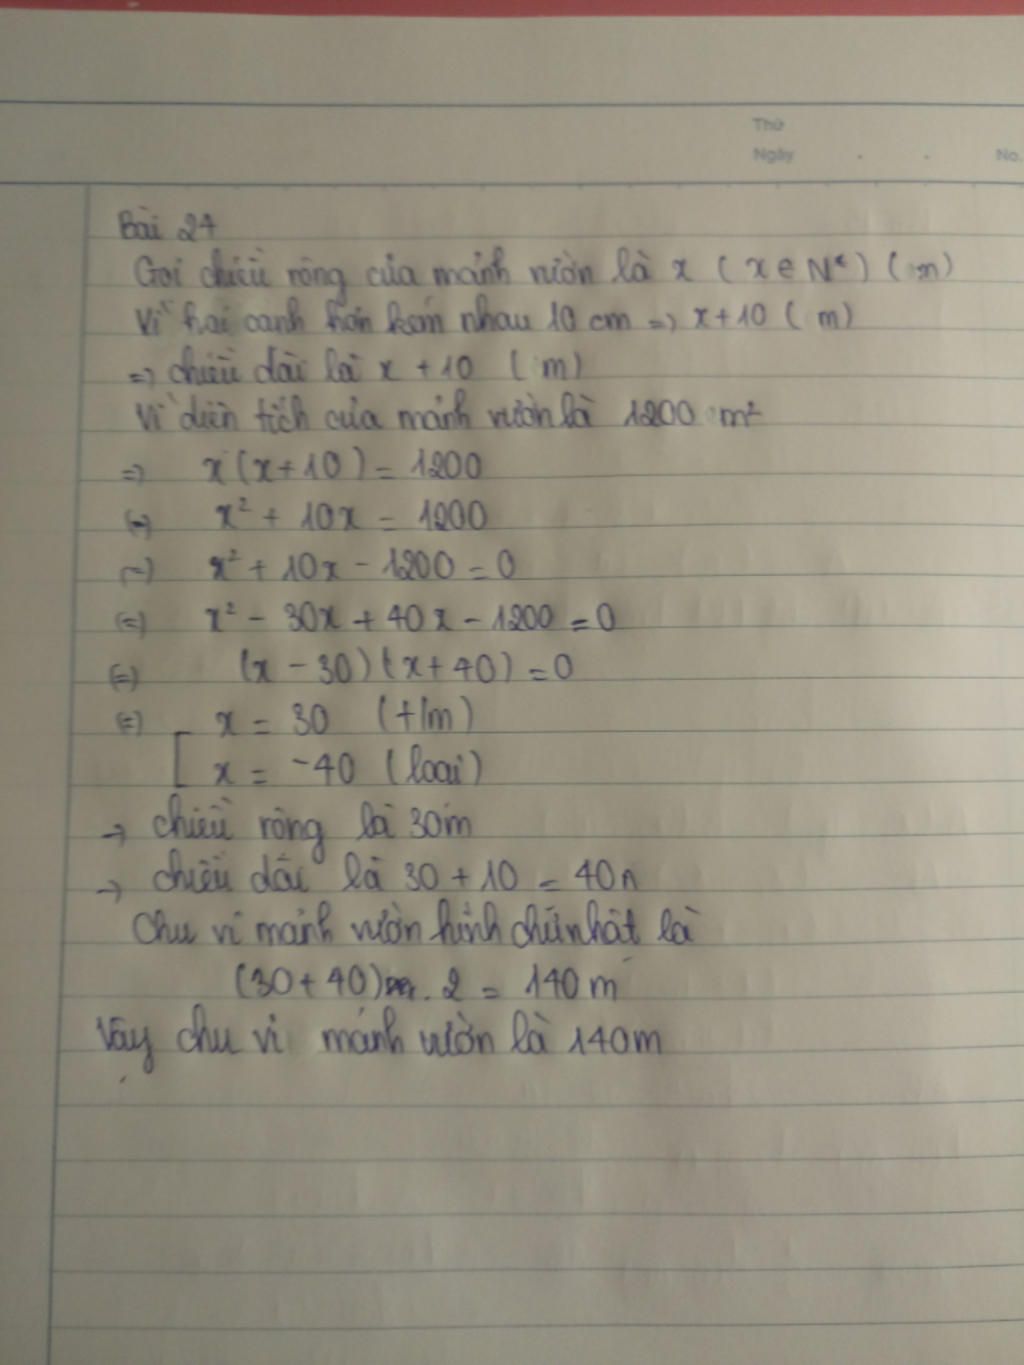 Thứ
Ngày . . No.
Bài 24
Gọi chiều rộng của mảnh vườn là x ( x ∈ N* ) ( m )
Vì hai cạnh hơn kém nhau 10 cm => x + 10 ( m )
=> chiều dài là x + 10 ( m )
Vì diện tích của mảnh vườn là 1200 m²
=> x ( x + 10 ) = 1200
(=) x² + 10x = 1200
(=) x² + 10x - 1200 = 0
(=) x² - 30x + 40x - 1200 = 0
(=) (x - 30) (x + 40) = 0
(=) [ x = 30 (t/m)
x = -40 (loại)
-> chiều rộng là 30m
-> chiều dài là 30 + 10 = 40m
Chu vi mảnh vườn hình chữ nhật là
(30 + 40) . 2 = 140 m
Vậy chu vi mảnh vườn là 140m